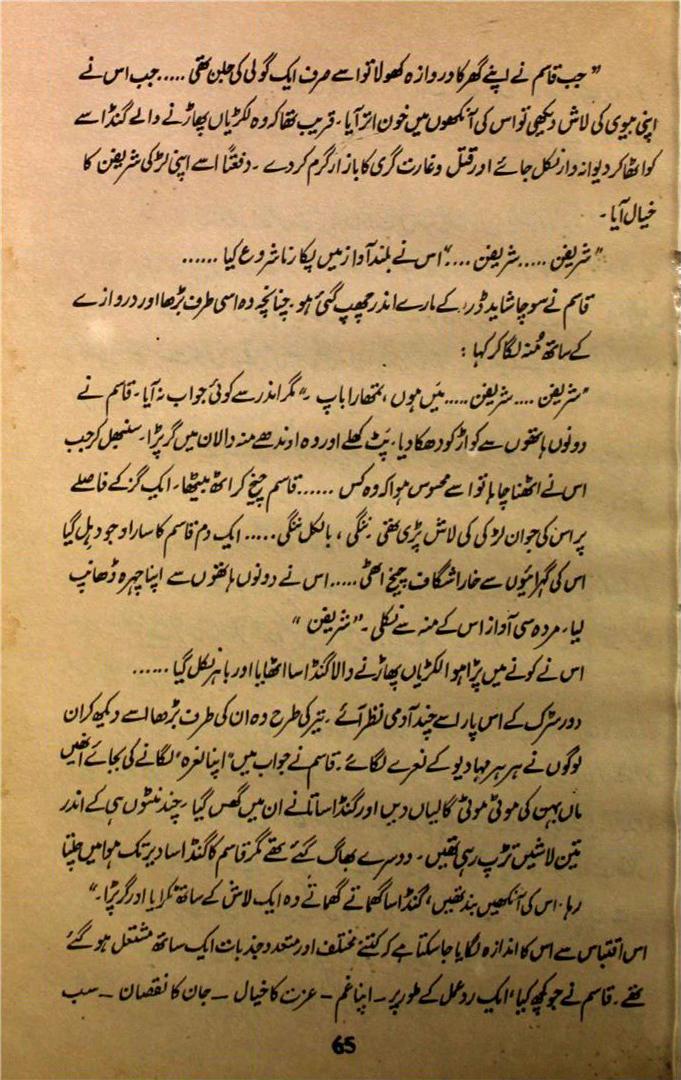 "جب قاسم نے اپنے گھر کا دروازہ کھولا تو اسے صرف ایک گولی کی جلن تھی .....جب اس نے
اپنی بیوی کی لاش دیکھی تو اس کی آنکھوں میں خون اتر آیا۔ قریب تھا کہ وہ لکڑیاں پھاڑنے والے گنڈاسے
کو اٹھا کر دیوانہ وار نکل جائے اور قتل وغارت گری کا بازار گرم کر دے ۔ دفعتًا اسے اپنی لڑکی شریفن کا
خیال آیا۔
"شریفن ..... شریفن ...." اس نے بلند آواز میں پکارنا شروع کیا ......
قاسم نے سوچا شاید ڈر کے مارے اندر چھپ گئی ہو۔ چنانچہ وہ اسی طرف بڑھا اور دروازے
کے ساتھ مُنہ لگا کر کہا :
"شریفن .... شریفن ..... مَیں ہوں ، تمھارا باپ ۔" مگر اندر سے کوئی جواب نہ آیا۔ قاسم نے
دونوں ہاتھوں سے کواڑ کو دھکا دیا۔ پٹ کھلے اور وہ اوندھے منہ دالان میں گر پڑا۔ سنبھل کر جب
اس نے اٹھنا چاہا تو اسے محسوس ہوا کہ وہ کس ...... قاسم چیخ کر اٹھ بیٹھا۔ ایک گز کے فاصلے
پر اس کی جوان لڑکی کی لاش پڑی تھی ننگی ، بالکل ننگی ..... ایک دم قاسم کا سارا وجود ہل گیا
اس کی گہرائیوں سے خارا شگاف چیخ اٹھی ..... اس نے دونوں ہاتھوں سے اپنا چہرہ ڈھانپ
لیا۔ مردہ سی آواز اس کے منہ سے نکلی ۔ "شریفن "
اس نے کونے میں پڑا ہوا لکڑیاں پھاڑنے والا گنڈاسا اٹھایا اور باہر نکل گیا ......
دور سڑک کے اس پار اسے چند آدمی نظر آئے ۔ تیر کی طرح وہ ان کی طرف بڑھا اسے دیکھ کر ان
لوگوں نے ہر ہر مہا دیو کے نعرے لگائے۔ قاسم نے جواب میں "اپنا نعرہ" لگانے کی بجائے انھیں
ماں بہن کی موٹی موٹی گالیاں دیں اور گنڈاسا تانے ان میں گھس گیا ۔ چند منٹوں ہی کے اندر
تین لاشیں تڑپ رہی تھیں ۔ دوسرے بھاگ گئے تھے مگر قاسم کا گنڈاسا دیر تک ہوا میں چلتا
رہا۔ اس کی آنکھیں بند تھیں، گنڈاسا گھماتے گھماتے وہ ایک لاش کے ساتھ ٹکرایا اور گر پڑا۔"
اس اقتباس سے اس کا اندازہ لگایا جا سکتا ہے کہ کتنے مختلف اور متعدد جذبات ایک ساتھ مشتعل ہو گئے
تھے ۔ قاسم نے جو کچھ کیا، ایک ردعمل کے طور پر – اپنا غم – عزت کا خیال – جان کا نقصان – سب
65